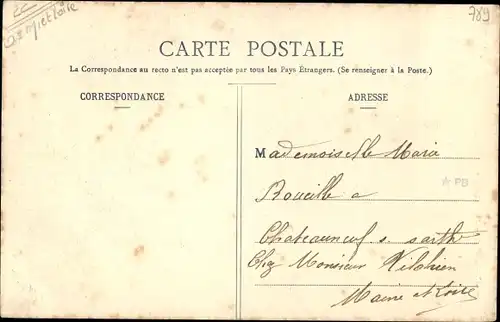 789
CARTE POSTALE
La Correspondance au recto n'est pas acceptée par tous les Pays Étrangers. (Se renseigner à la Poste.)
CORRESPONDANCE
ADRESSE
Mademoiselle Maria
Roueille a
PB
Chateauneuf s. sarthe
Chez Monsieur
Maine et Loire